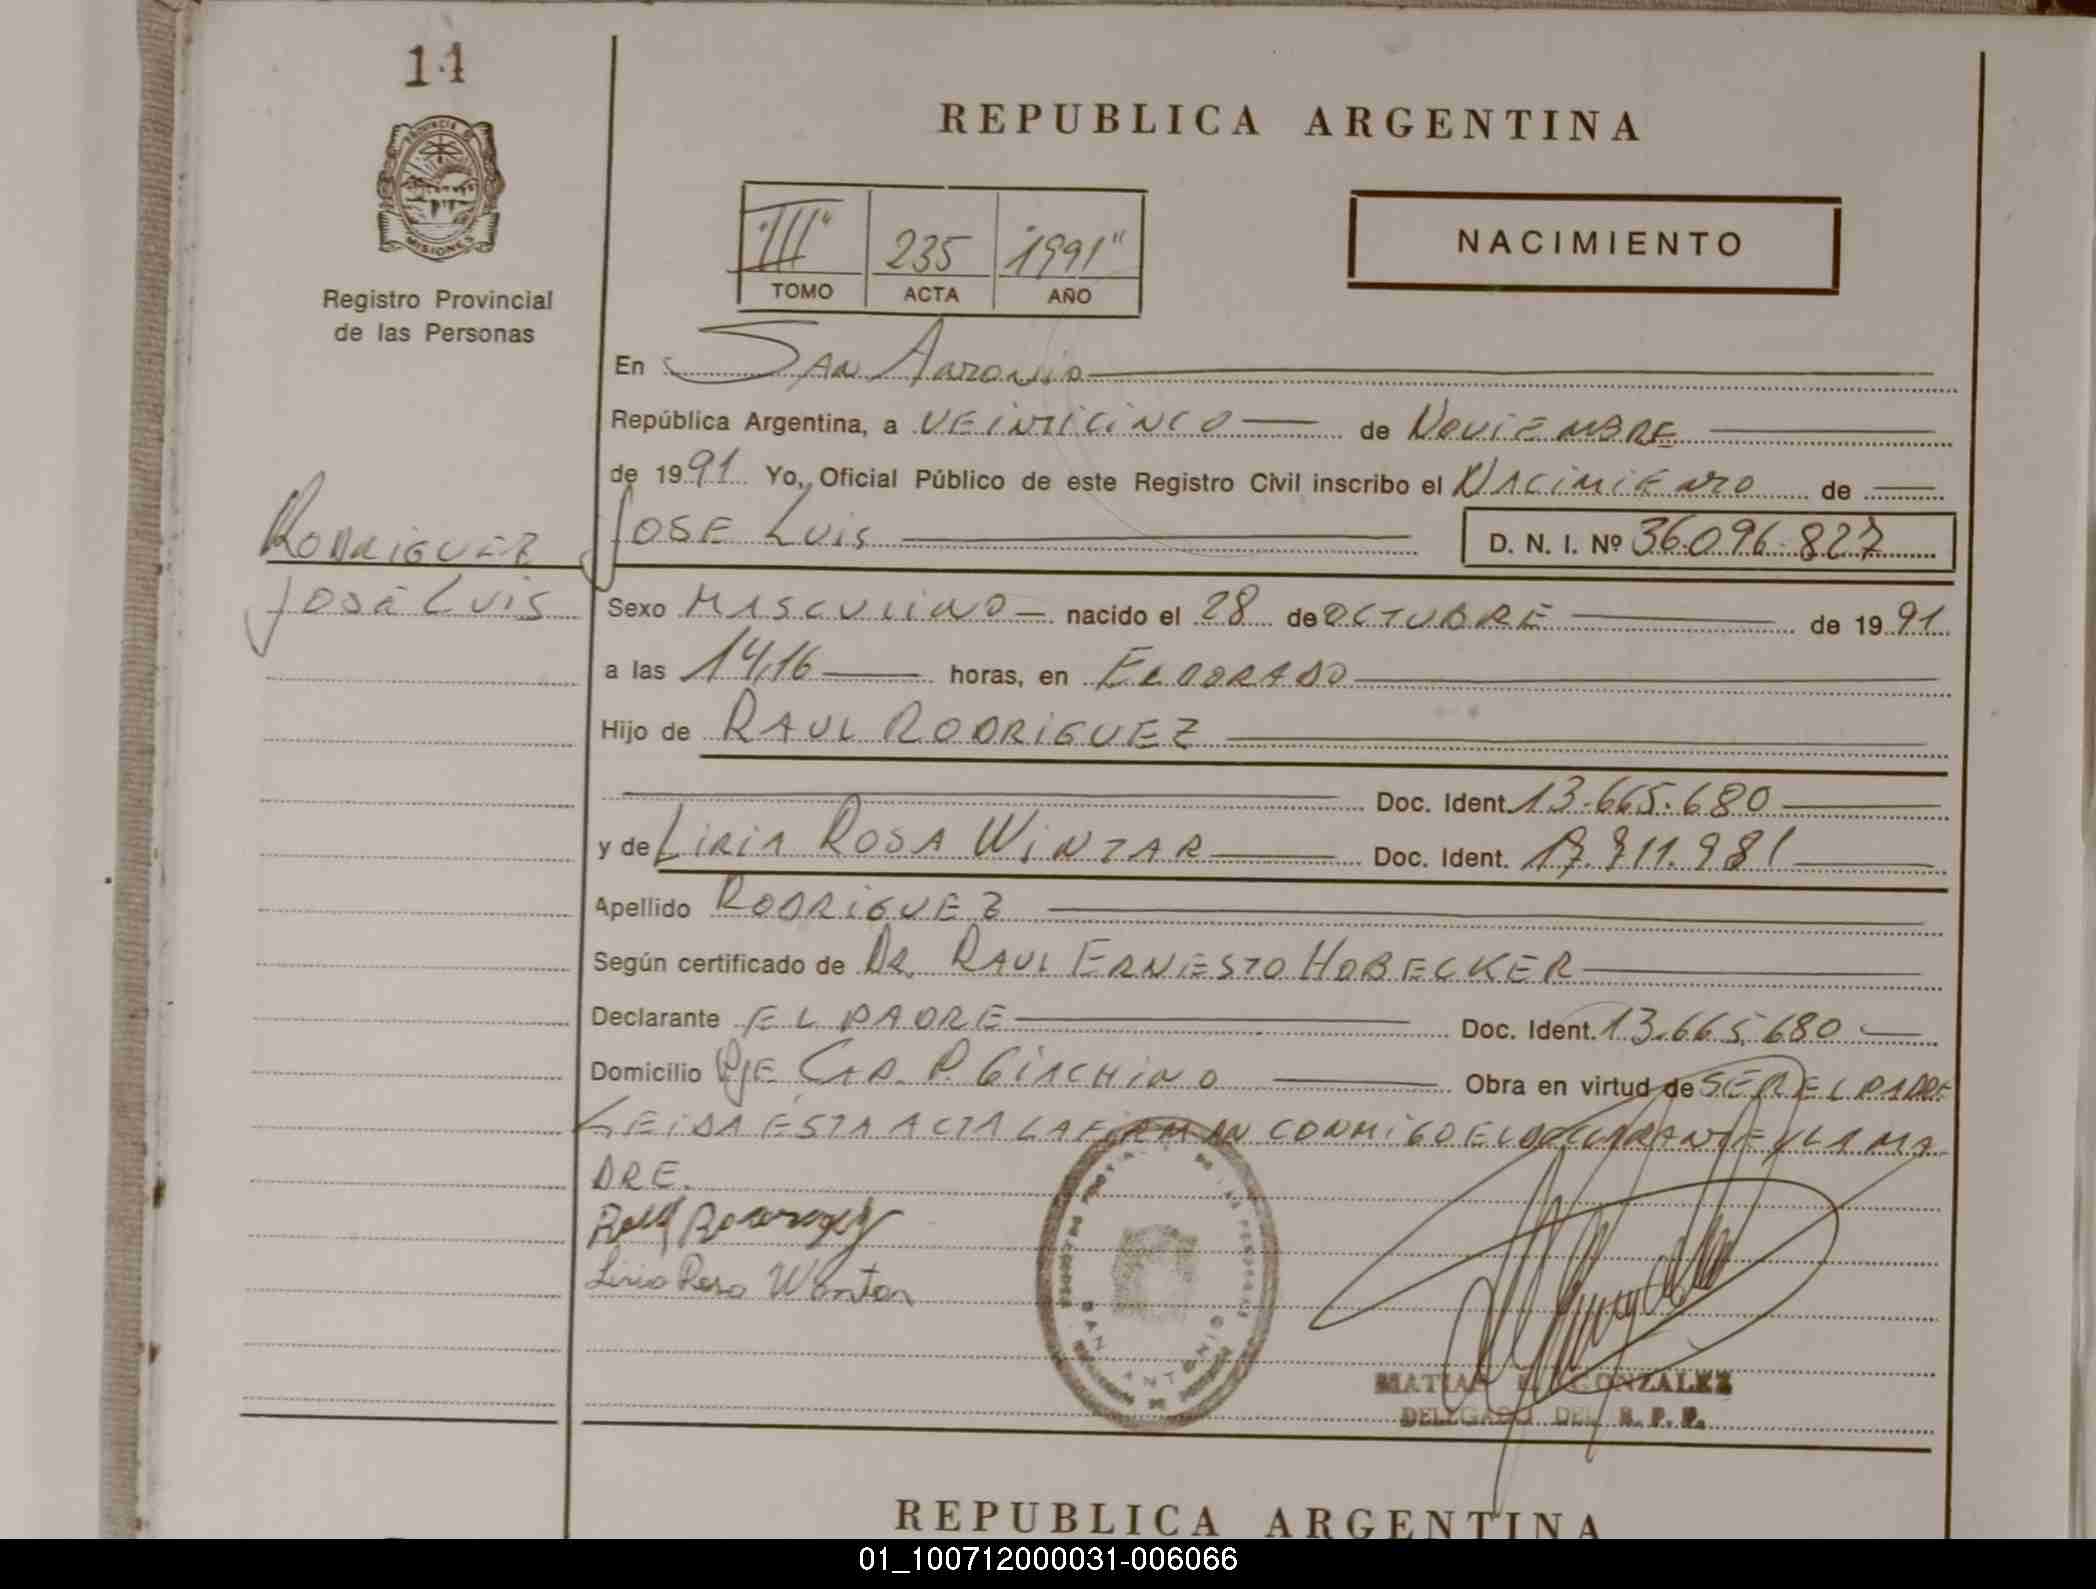 14
PROVINCIA DE
MISIONES
Registro Provincial
de las Personas
REPUBLICA ARGENTINA
"III" 235 "1991"
TOMO ACTA AÑO
NACIMIENTO
En San Antonio
República Argentina, a VEINTICINCO de NOVIEMBRE
de 1991 Yo, Oficial Público de este Registro Civil inscribo el NACIMIENTO de
RODRIGUEZ
JOSE LUIS
JOSE LUIS D. N. I. Nº 36.096.827
Sexo MASCULINO nacido el 28 de OCTUBRE de 1991
a las 14,16 horas, en ELDORADO
Hijo de RAUL RODRIGUEZ
Doc. Ident. 13.665.680
y de LIRIA ROSA WINTAR Doc. Ident.
Apellido RODRIGUEZ
Según certificado de DR. RAUL ERNESTO HOBECKER
Declarante EL PADRE Doc. Ident. 13.665.680
Domicilio PJE CAP. P. GIACHINO Obra en virtud de SER EL PADRE
LEIDA ESTA ACTA LA FIRMAN CONMIGO EL DECLARANTE Y LA MA
DRE.
Liria Rosa
SAN ANTONIO
MATIAS GONZALEZ
DELEGADO DEL R. P. P.
REPUBLICA ARGENTINA
01_100712000031-006066